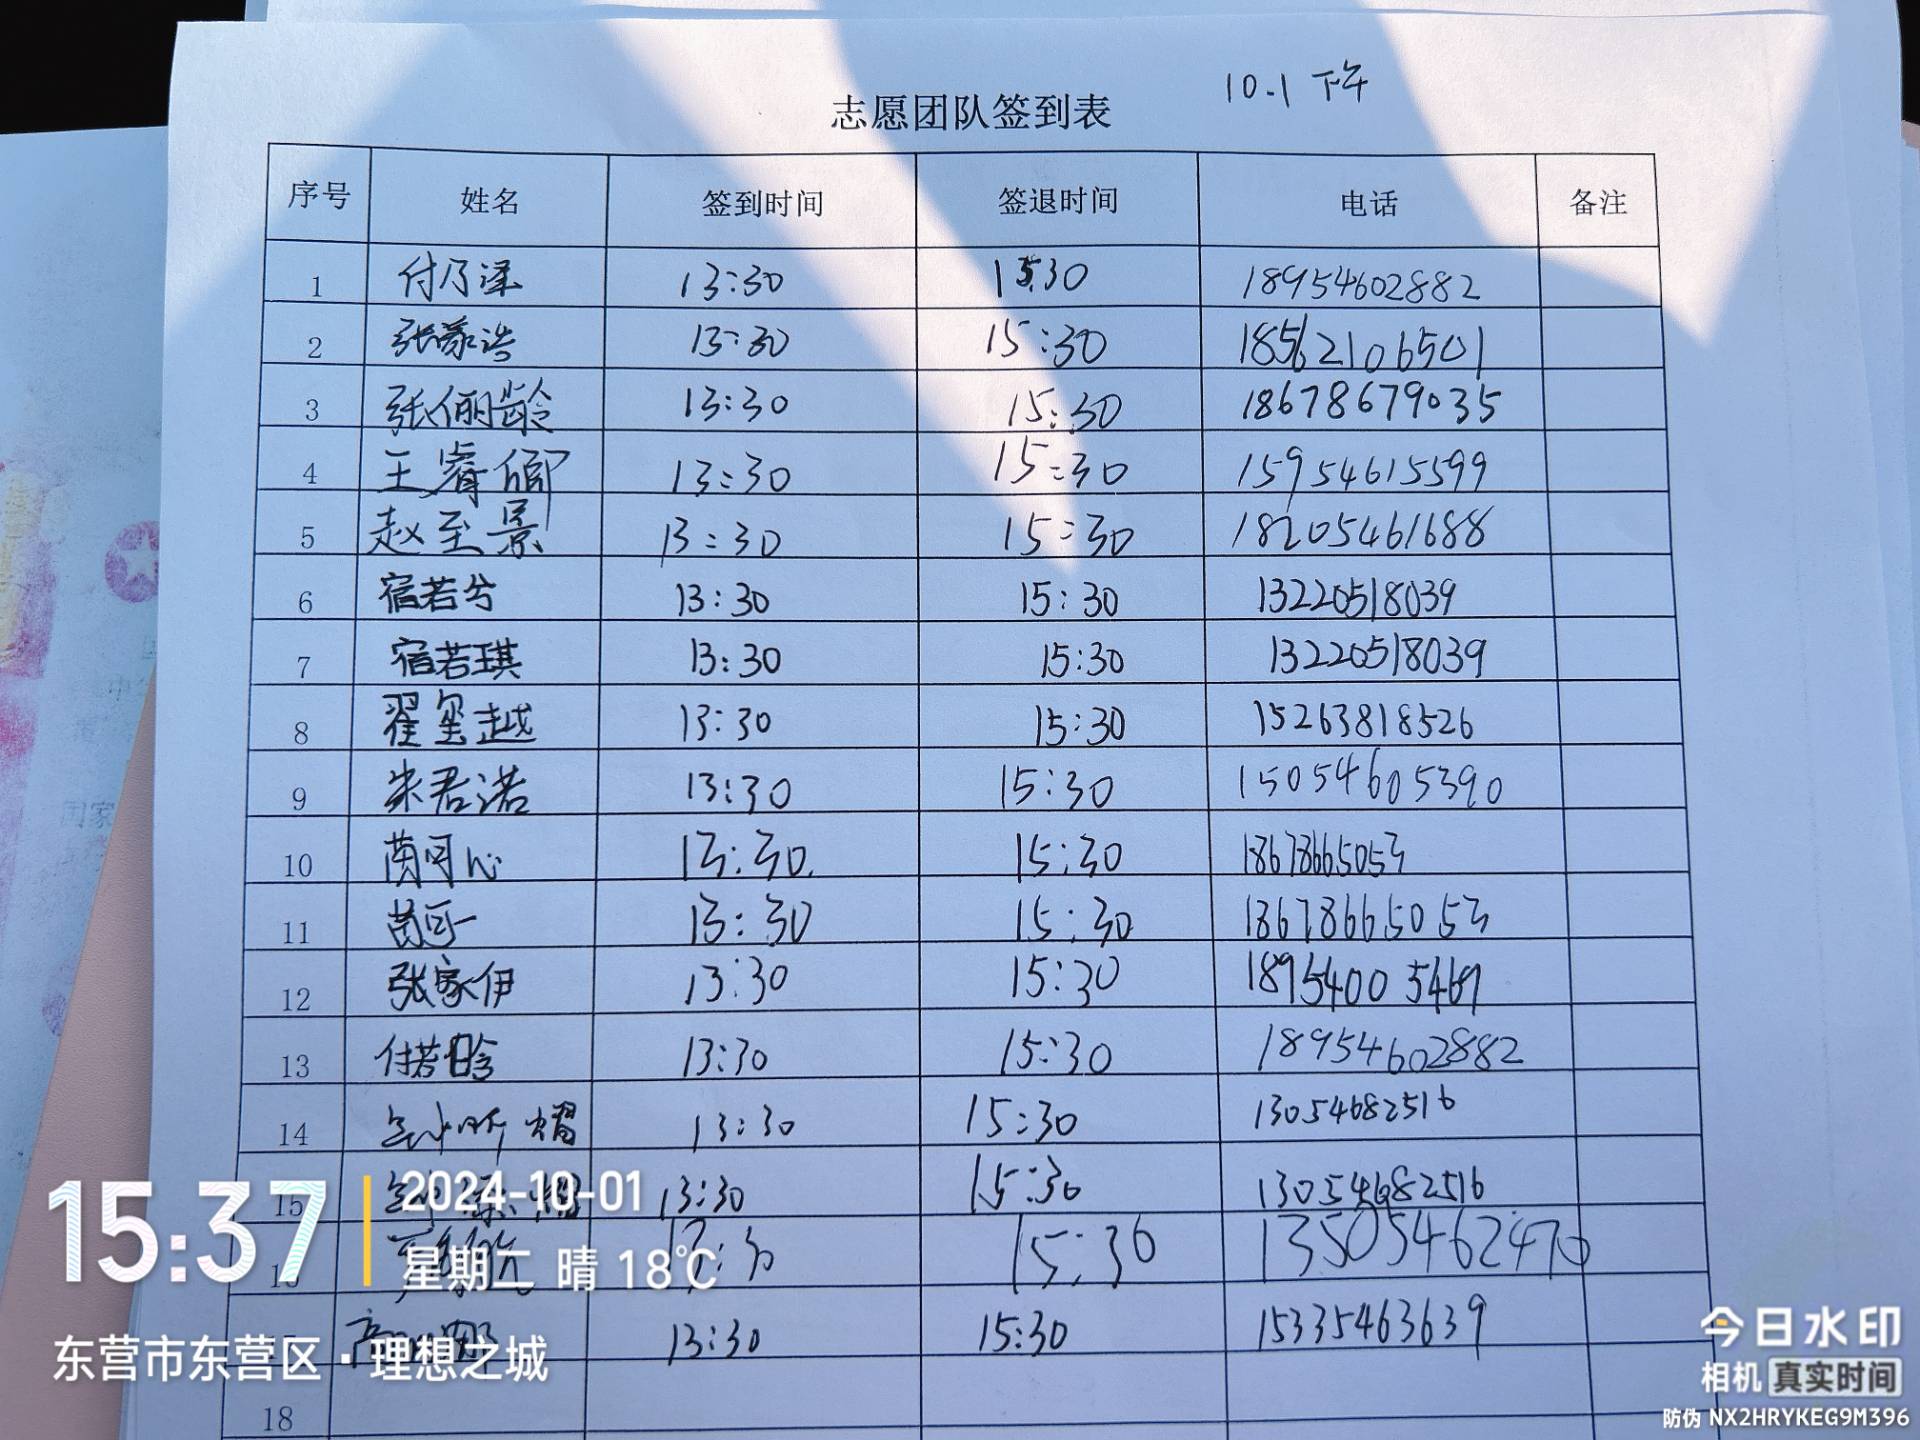 10.1 下午
志愿团队签到表
序号 姓名 签到时间 签退时间 电话 备注
1 付乃泽 13:30 15:30 18954602882
2 张家浩 13:30 15:30 18562106501
3 张俪龄 13:30 15:30 18678679035
4 王睿卿 13:30 15:30 15954615599
5 赵至景 13:30 15:30 18205461688
6 宿若兮 13:30 15:30 13220518039
7 宿若琪 13:30 15:30 13220518039
8 翟玺越 13:30 15:30 15263818526
9 朱君诺 13:30 15:30 15054605390
10 可心 13:30 15:30 18678665053
11 可一 13:30 15:30 18678665053
12 张家伊 13:30 15:30 18954005469
13 付若晗 13:30 15:30 18954602882
14 13:30 15:30 13054682516
15 13:30 15:30 13054682516
16 13:30 15:30 13505462470
17 13:30 15:30 15335463639
18
15:37
2024-10-01
星期二 晴 18℃
东营市东营区·理想之城
今日水印
相机 真实时间
防伪 NX2HRYKEG9M396